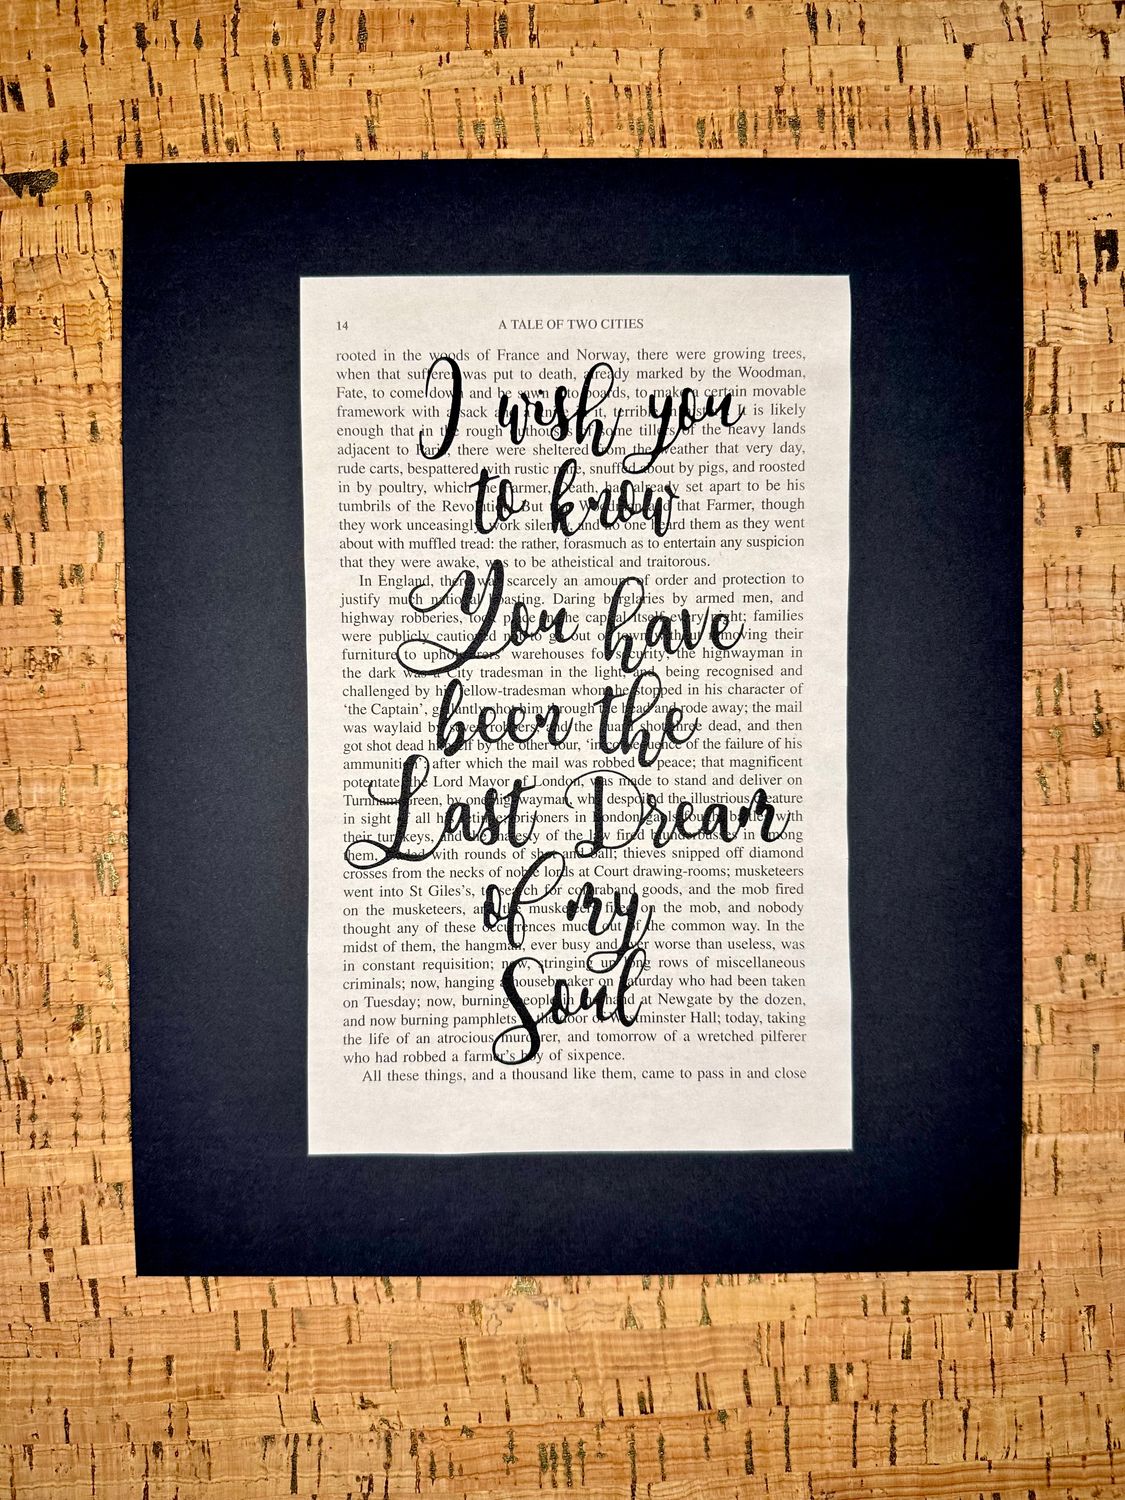 14 A TALE OF TWO CITIES
I wish you
to know
You have
been the
Last Dream
of my
Soul
rooted in the woods of France and Norway, there were growing trees,
when that sufferer was put to death, already marked by the Woodman,
Fate, to come down and be sawn into boards, to make a certain movable
framework with a sack and terrible in It is likely
enough that in the rough outhouses of some tillers of the heavy lands
adjacent to Paris, there were sheltered from the weather that very day,
rude carts, bespattered with rustic mire, snuffed about by pigs, and roosted
in by poultry, which the Farmer, Death, had already set apart to be his
tumbrils of the Revolution. But that Woodman and that Farmer, though
they work unceasingly, work silently, and no one heard them as they went
about with muffled tread: the rather, forasmuch as to entertain any suspicion
that they were awake, was to be atheistical and traitorous.
In England, there was scarcely an amount of order and protection to
justify much national boasting. Daring burglaries by armed men, and
highway robberies, took place in the capital itself every night; families
were publicly cautioned not to go out of town without removing their
furniture to upholsterers' warehouses for security; the highwayman in
the dark was a City tradesman in the light, and, being recognised and
challenged by his fellow-tradesman whom he stopped in his character of
‘the Captain’, gallantly shot him through the head and rode away; the mail
was waylaid by seven robbers, and the guard shot three dead, and then
got shot dead himself by the other four, ‘in consequence of the failure of his
ammunition’: after which the mail was robbed in peace; that magnificent
potentate, the Lord Mayor of London, was made to stand and deliver on
Turnham Green, by one highwayman, who despoiled the illustrious creature
in sight of all his prisoners in London gaols fought battles with
their turnkeys, and the majesty of the law fired blunderbusses in among
them, loaded with rounds of shot and ball; thieves snipped off diamond
crosses from the necks of noble lords at Court drawing-rooms; musketeers
went into St Giles's, to search for contraband goods, and the mob fired
on the musketeers, and the musketeers fired on the mob, and nobody
thought any of these occurrences much out of the common way. In the
midst of them, the hangman, ever busy and ever worse than useless, was
in constant requisition; now, stringing up long rows of miscellaneous
criminals; now, hanging a housebreaker on Saturday who had been taken
on Tuesday; now, burning people in the hand at Newgate by the dozen,
and now burning pamphlets at the door of Westminster Hall; today, taking
the life of an atrocious murderer, and tomorrow of a wretched pilferer
who had robbed a farmer's boy of sixpence.
All these things, and a thousand like them, came to pass in and close